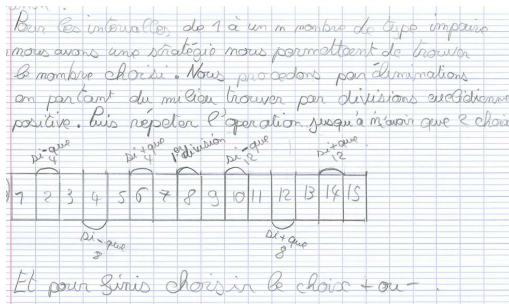 Pour les intervalles de 1 à un n nombre de type impaire
nous avons une stratégie nous permettant de trouver
le nombre choisi. Nous procedons par éliminations
en partant du milieu trouver par divisions euclidienne
positive. Puis répéter l'operation jusqu'à n'avoir que 2 choix
si - que 4
si + que 4
1er division
si - que 12
si + que 12
1 2 3 4 5 6 7 8 9 10 11 12 13 14 15
si - que 8
si + que 8
Et pour finir choisir le choix + ou -.